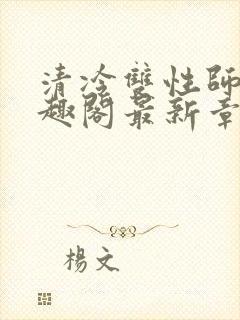 清冷雙性師
趣閣最新章
楊文